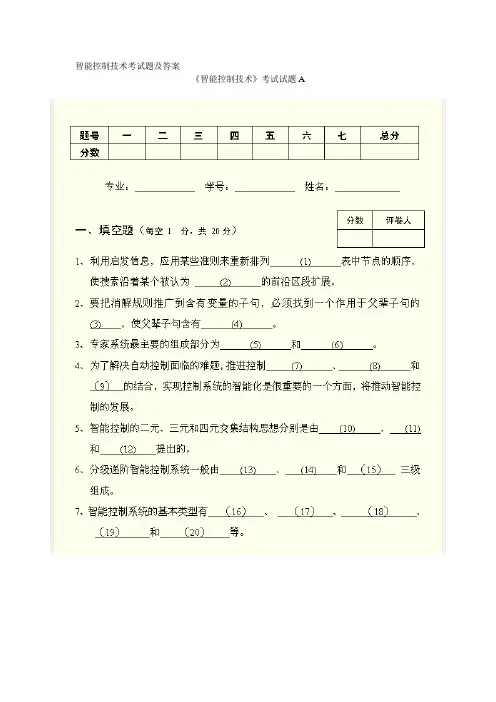 智能控制技术考试题及答案
《智能控制技术》考试试题A
题号 一 二 三 四 五 六 七 总分
分数
专业：____________ 学号：____________ 姓名：_____________
分数 评卷人
一、填空题（每空 1 分，共 20分）
1、利用启发信息，应用某些准则来重新排列______(1)______表中节点的顺序，
使搜索沿着某个被认为______(2)______的前沿区段扩展。
2、要把消解规则推广到含有变量的子句，必须找到一个作用于父辈子句的
(3)____，使父辈子句含有______(4)______。
3、专家系统最主要的组成部分为______(5)______和______(6)______。
4、为了解决自动控制面临的难题，推进控制____(7)____、____(8)____和
（9）的结合，实现控制系统的智能化是很重要的一个方面，将推动智能控
制的发展。
5、智能控制的二元、三元和四元交集结构思想分别是由____(10)____、__(11)
和____(12)____提出的。
6、分级递阶智能控制系统一般由____(13)____、____(14)____和__（15）__三级
组成。
7、智能控制系统的基本类型有__（16）__、__（17）__、____（18）____、
（19）____和____（20）____等。